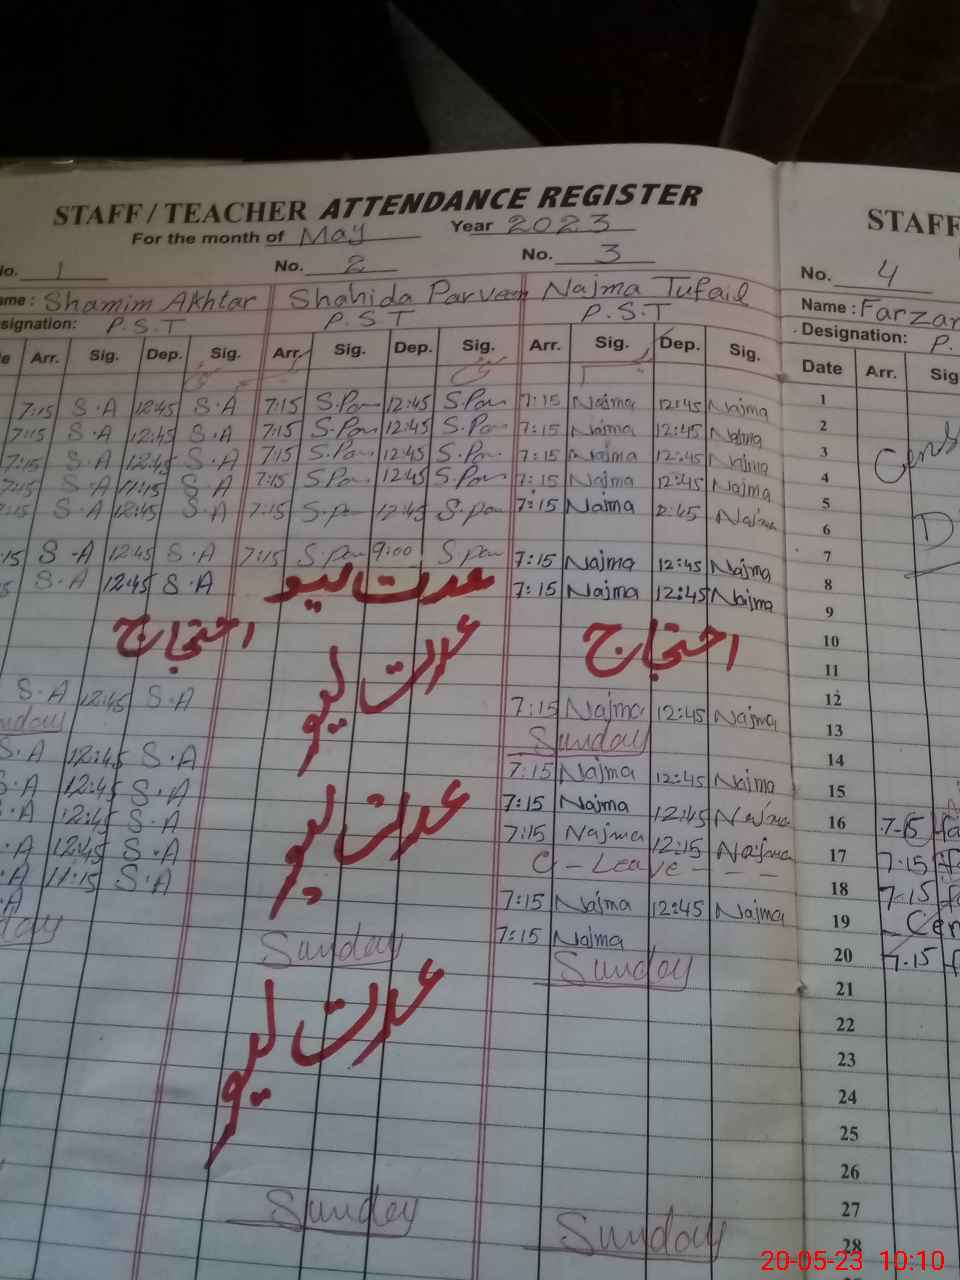 STAFF / TEACHER ATTENDANCE REGISTER STAFF
For the month of May Year 2023
No. 1 No. 2 No. 3 No. 4
ame : Shamim Akhtar Shahida Parveen Najma Tufail Name : Farzan
signation: P.S.T P.S.T P.S.T Designation: P.
e Arr. Sig. Dep. Sig. Arr. Sig. Dep. Sig. Arr. Sig. Dep. Sig. Date Arr. Sig
7:15 S.A 12:45 S.A 7:15 S.Par 12:45 S.Par 7:15 Najma 12:45 Najma 1
7:15 S.A 12:45 S.A 7:15 S.Par 12:45 S.Par 7:15 Najma 12:45 Najma 2
7:15 S.A 12:45 S.A 7:15 S.Par 12:45 S.Par 7:15 Najma 12:45 Najma 3
7:15 S.A 11:15 S.A 7:15 S.Par 12:45 S.Par 7:15 Najma 12:45 Najma 4
7:15 S.A 12:45 S.A 7:15 S.par 12:45 S.par 7:15 Najma 12:45 Najma 5
6
:15 S.A 12:45 S.A 7:15 S par 9:00 S par 7:15 Najma 12:45 Najma 7
S.A 12:45 S.A عدت لیو 7:15 Najma 12:45 Najma 8
9
احتجاج عدت لیو احتجاج 10
11
S.A 12:45 S.A 7:15 Najma 12:45 Najma 12
nday Sunday 13
S.A 12:45 S.A 7:15 Najma 12:45 Najma 14
S.A 12:45 S.A 7:15 Najma 12:45 Najma 15
S.A 12:45 S.A عدت لیو 7:15 Najma 12:15 Najma 16 7-15
.A 12:45 S.A C-Leave - - - 17 7-15
.A 11:15 S.A 7:15 Najma 12:45 Najma 18 7-15
.A 7:15 Najma 19 Cen
day Sunday Sunday 20 7.15
21
عدت لیو 22
23
24
25
26
Sunday 27
Sunday 28
20-05-23 10:10